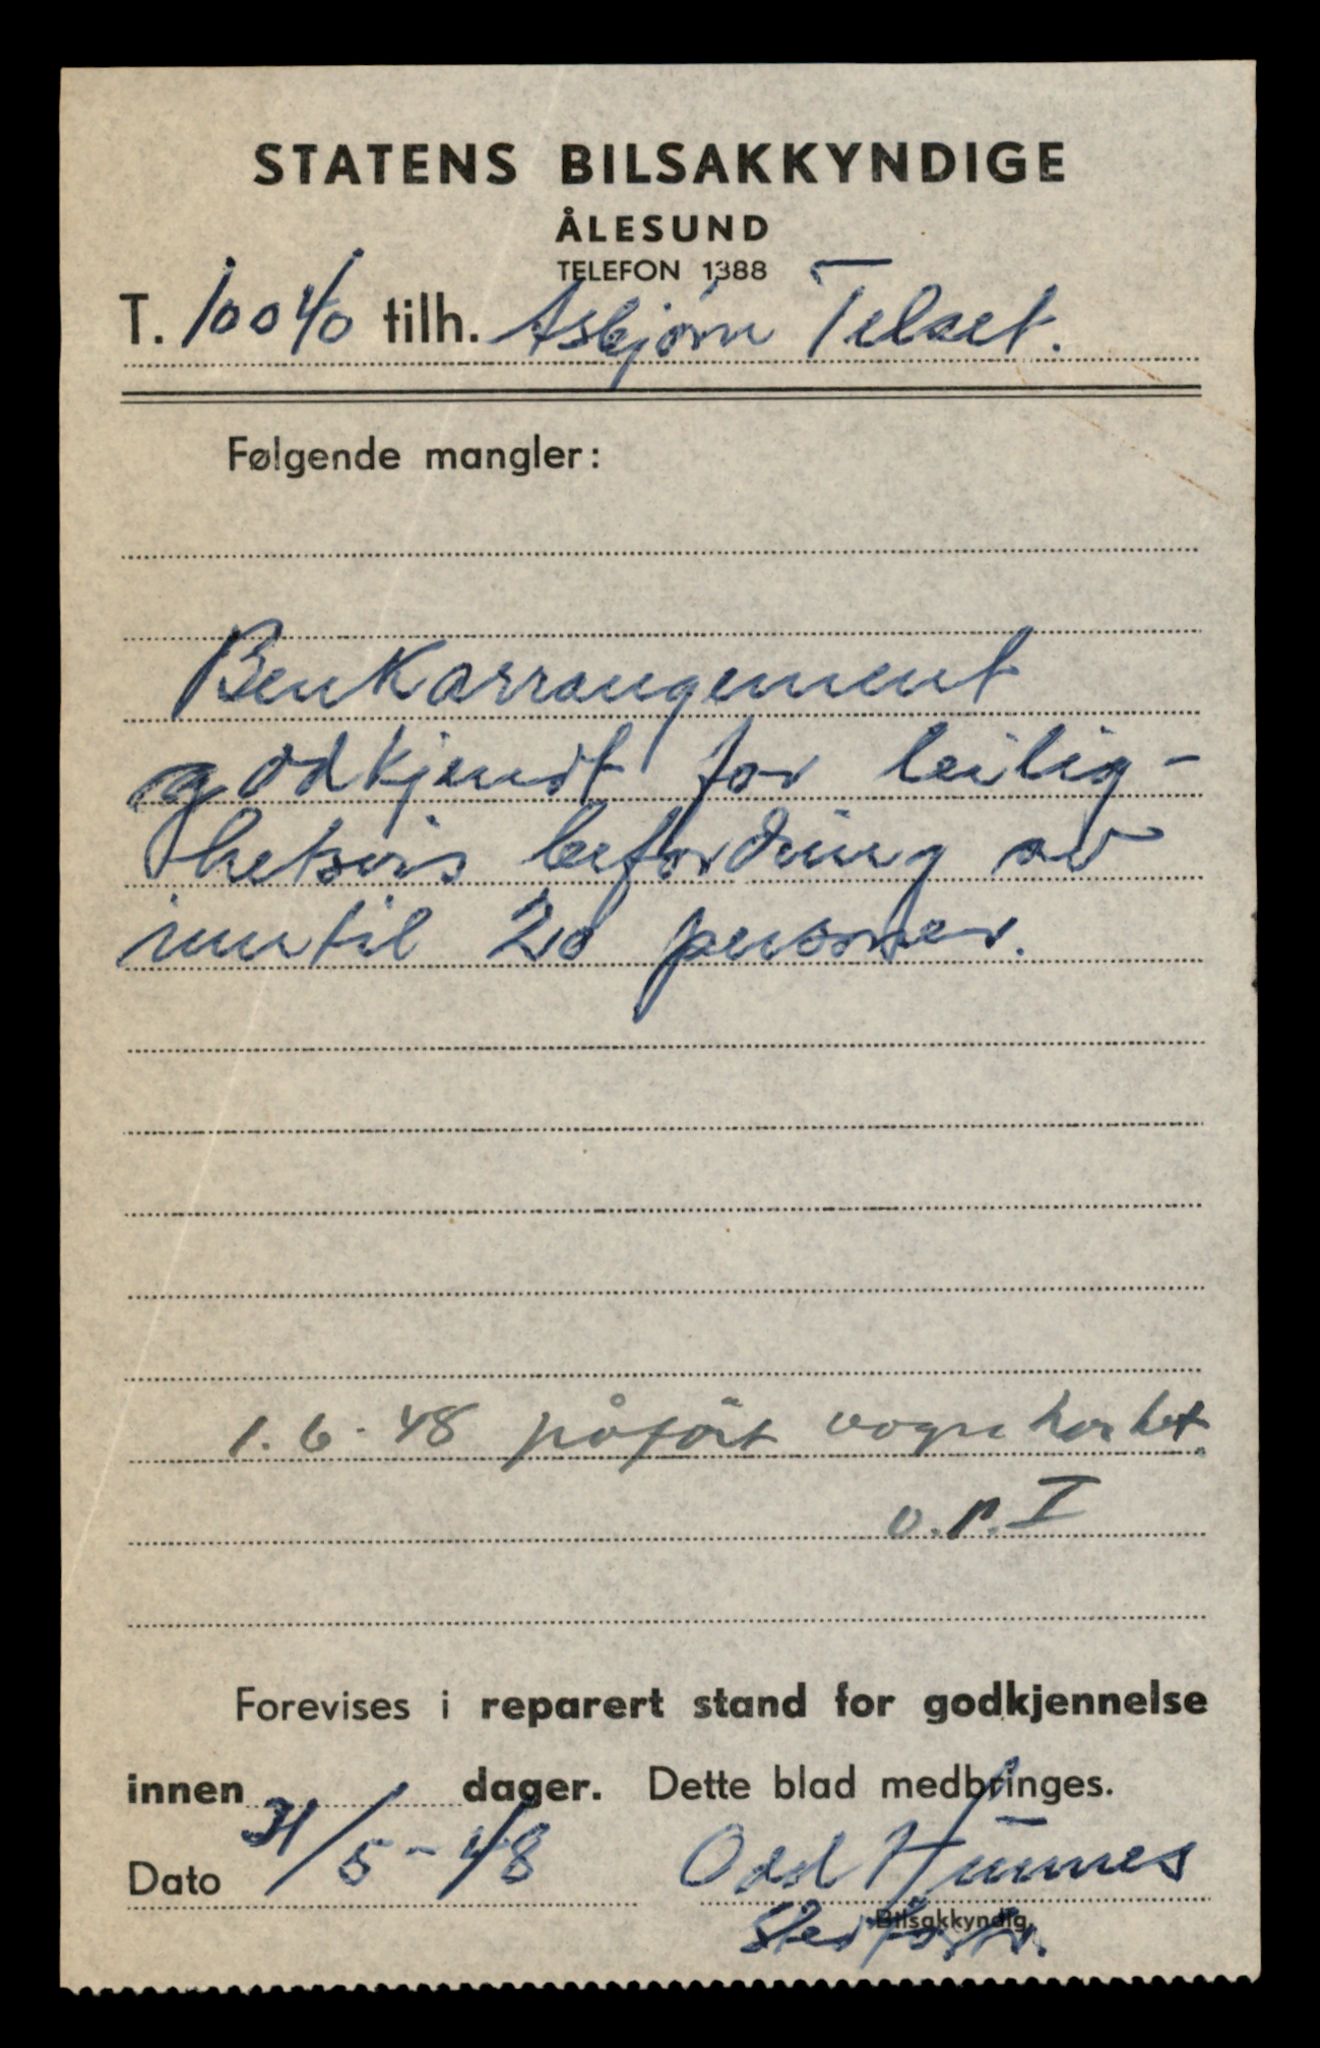 STATENS BILSAKKYNDIGE
ÅLESUND
TELEFON 1388
T. 10040 tilh. Asbjørn Telset.
Følgende mangler:
Benkarrangement
godkjendt for leilig-
hetsvis befordring av
inntil 20 personer.
1.6.48 påført vognkortet.
o.r. I
Forevises i reparert stand for godkjennelse
innen dager. Dette blad medbringes.
Dato 31/5-48 Odd Humnes
Bilsakkyndig.